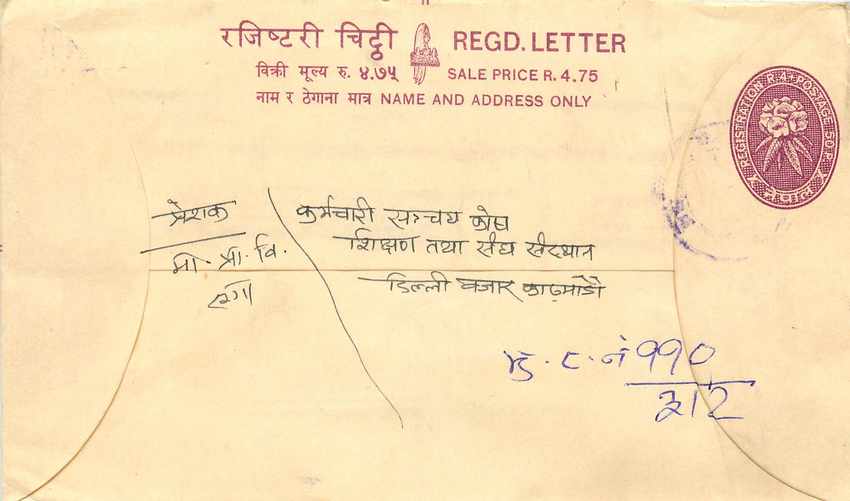 रजिष्टरी चिट्ठी REGD. LETTER
विक्री मूल्य रु. ४.७५ SALE PRICE R. 4.75
नाम र ठेगाना मात्र NAME AND ADDRESS ONLY
REGISTRATION R.4+POSTAGE 50P.
प्रेशक
मी. श्री. वि.
कर्मचारी सञ्चय कोष
शिक्षण तथा संघ संस्थान
डिल्ली बजार काठमाडौं
९९०
३१२